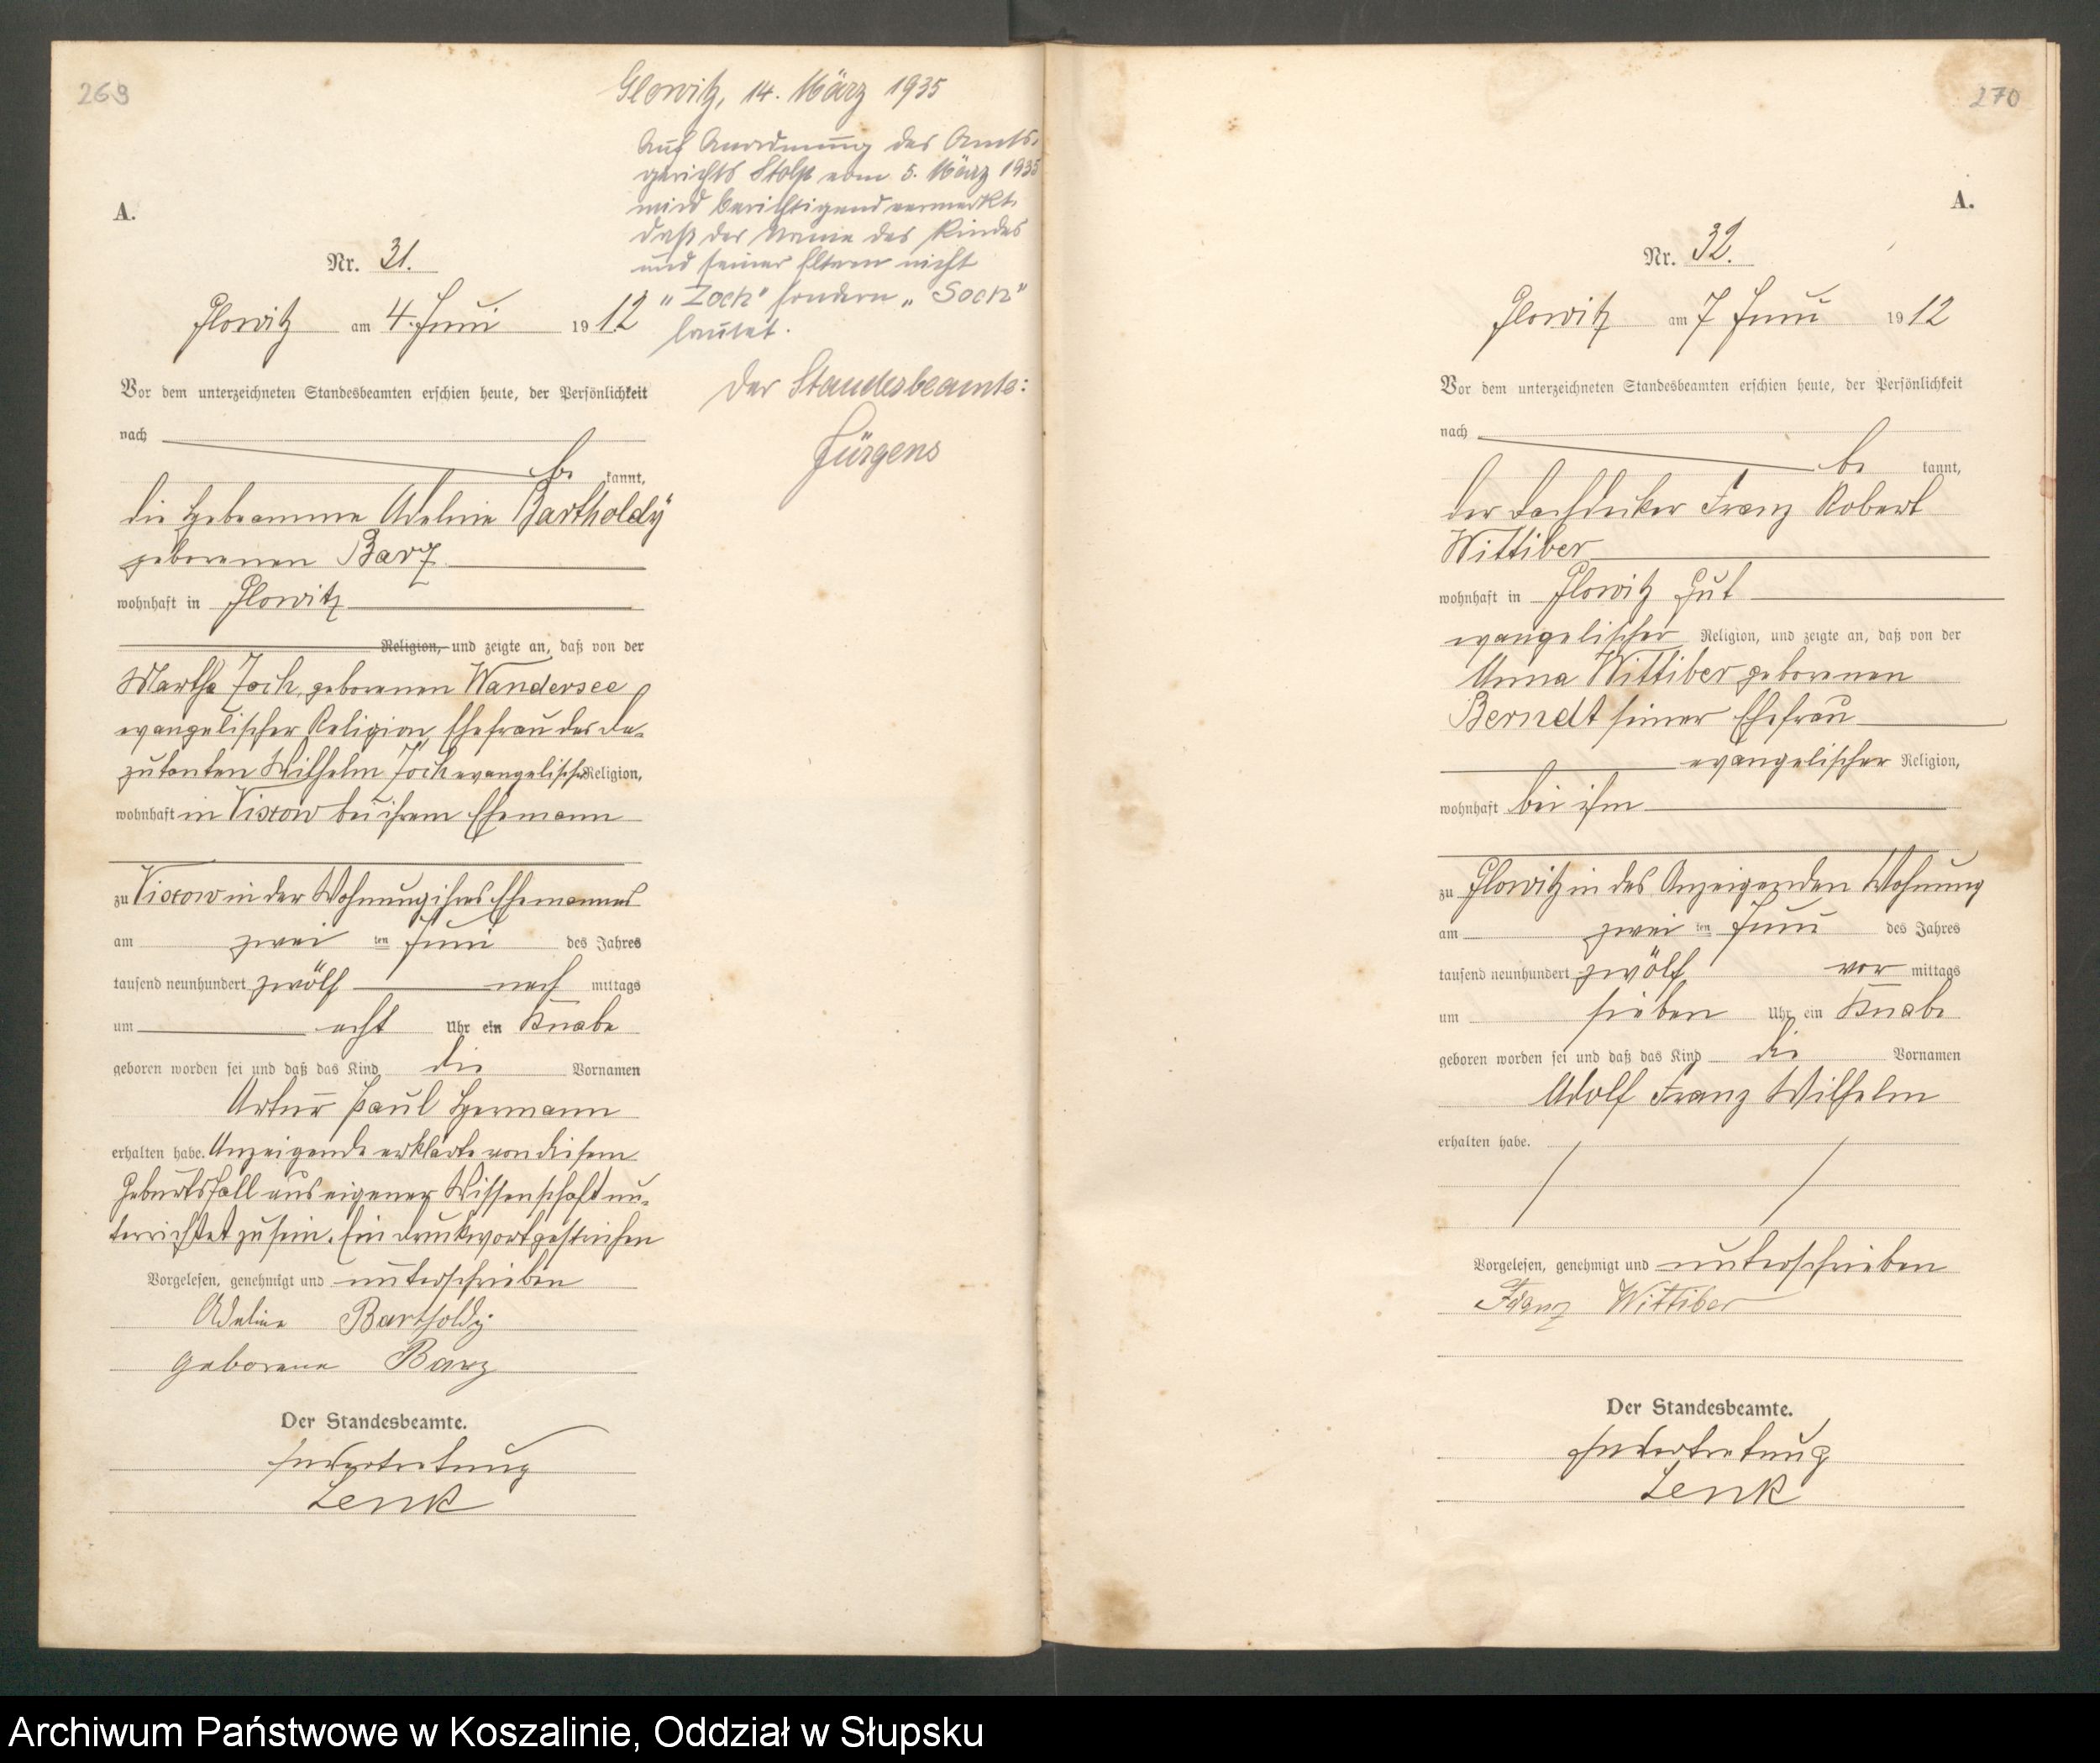 269
Glowitz, 14. März 1935
Auf Anordnung des Amts-
gerichts Stolp vom 5. März 1935
wird berichtigend vermerkt,
daß der Name des Kindes
und seiner Eltern nicht
„Zoch" sondern „Sock"
lautet.
Der Standesbeamte:
Jürgens
A.
Nr. 31.
Glowitz am 4. Juni 1912
Vor dem unterzeichneten Standesbeamten erschien heute, der Persönlichkeit
nach
be kannt,
die Hebeamme Adeline Bartholdy
geborenen Barz
wohnhaft in Glowitz
Religion, und zeigte an, daß von der
Martha Zoch, geborenen Wandersee
evangelischer Religion, Ehefrau des De-
putanten Wilhelm Zoch evangelischer Religion,
wohnhaft in Vixow bei ihrem Ehemann
zu Vixow in der Wohnung ihres Ehemannes
am zwei ten Juni des Jahres
tausend neunhundert zwölf nach mittags
um acht Uhr ein Knabe
geboren worden sei und daß das Kind die Vornamen
Artur Paul Hermann
erhalten habe. Anzeigende erklärte von diesem
Geburtsfall aus eigener Wissenschaft un-
terrichtet zu sein. Ein Druckwort gestrichen
Vorgelesen, genehmigt und unterschrieben
Adeline Bartholdy
geborene Barz
Der Standesbeamte.
In Vertretung
Lenk
270
A.
Nr. 32.
Glowitz am 7 Juni 1912
Vor dem unterzeichneten Standesbeamten erschien heute, der Persönlichkeit
nach
be kannt,
der Dachdecker Franz Robert
Wittiber
wohnhaft in Glowitz Gut
evangelischer Religion, und zeigte an, daß von der
Anna Wittiber geborenen
Berndt seiner Ehefrau
evangelischer Religion,
wohnhaft bei ihm
zu Glowitz in des Anzeigenden Wohnung
am zwei ten Juni des Jahres
tausend neunhundert zwölf vor mittags
um sieben Uhr ein Knabe
geboren worden sei und daß das Kind die Vornamen
Adolf Franz Wilhelm
erhalten habe.
Vorgelesen, genehmigt und unterschrieben
Franz Wittiber
Der Standesbeamte.
In Vertretung
Lenk
Archiwum Państwowe w Koszalinie, Oddział w Słupsku